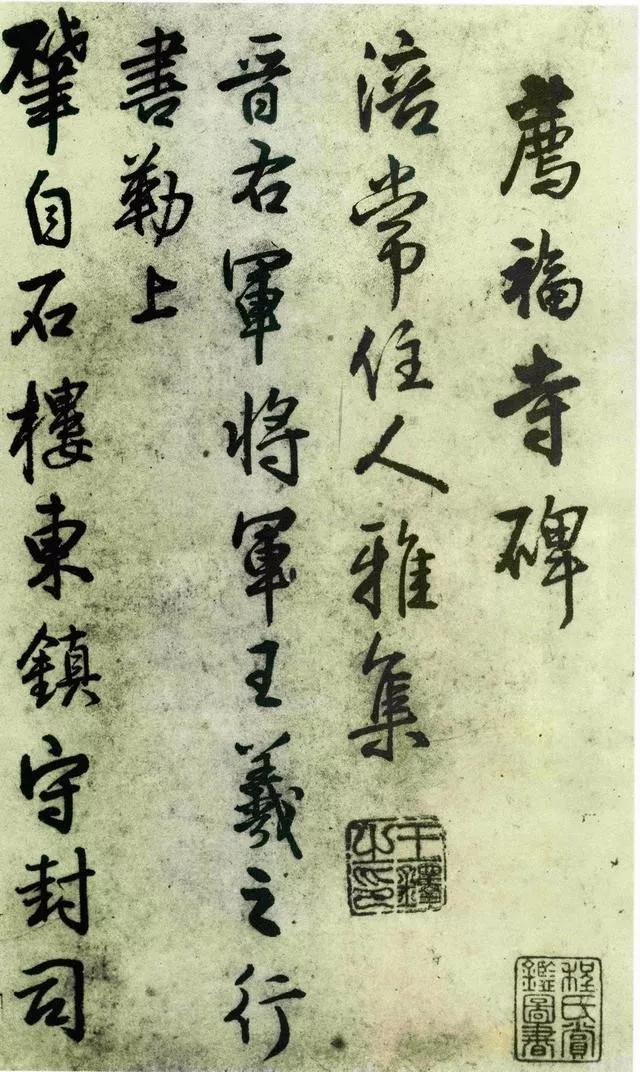 薦福寺碑
程氏賞鑑圖書
涪常住人雅集
王鐸之印
晉右軍將軍王羲之行
書勒上
肇自石樓東鎮守封司